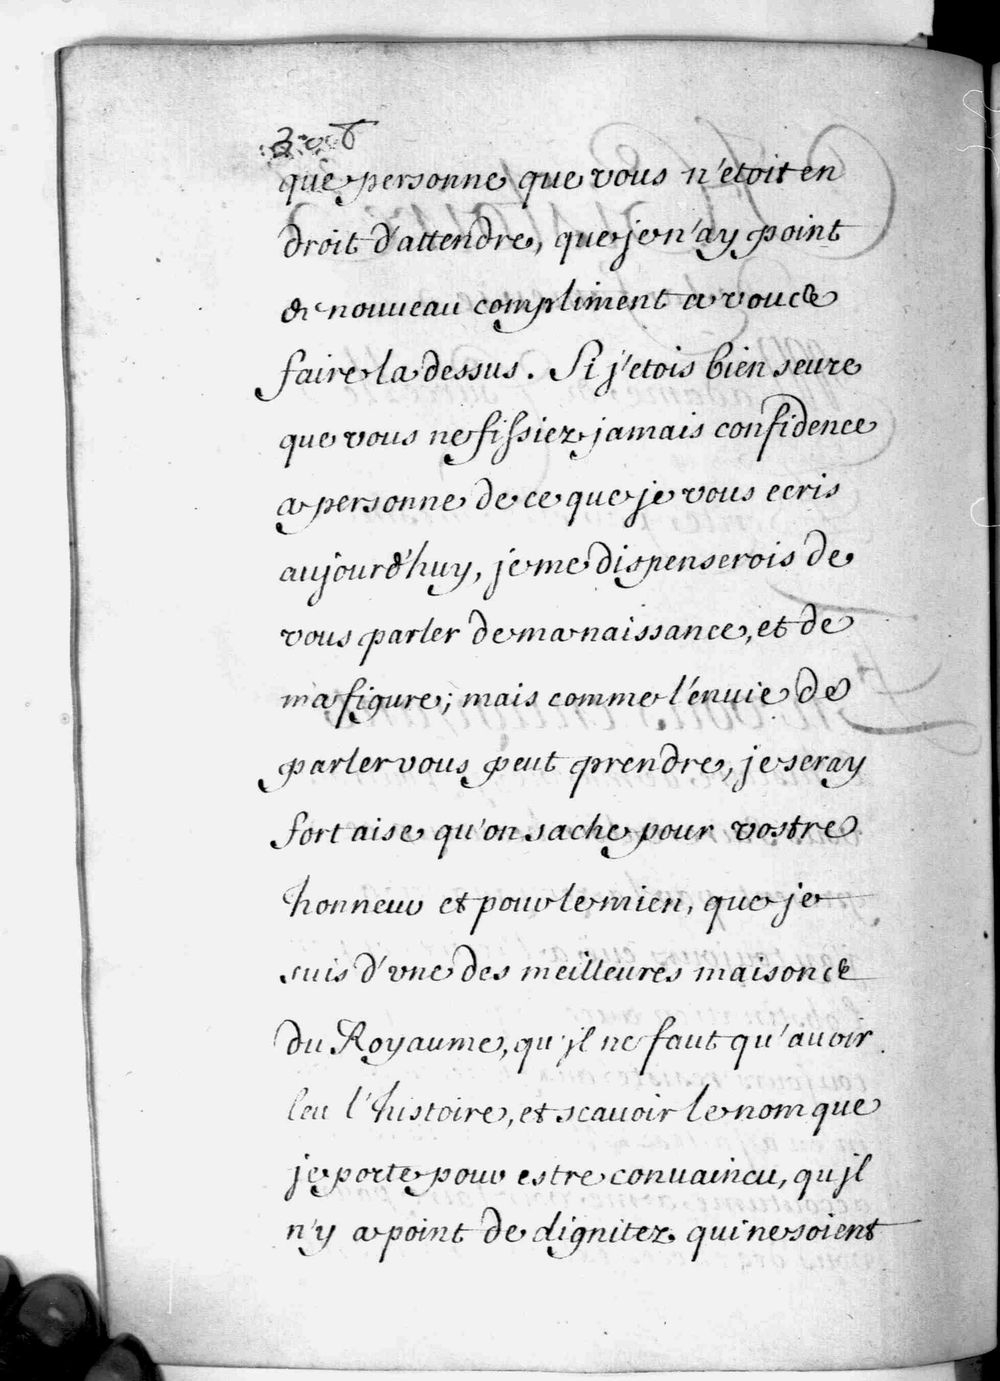 que personne que vous n'etoit en
droit d'attendre, que je n'ay point
de nouveau compliment a vous
faire la dessus. Si j'etois bien seure
que vous ne fissiez jamais confidence
a personne de ce que je vous ecris
aujourd'huy, je me dispenserois de
vous parler de ma naissance, et de
ma figure; mais comme l'enuie de
parler vous peut prendre, je seray
fort aise qu'on sache pour vostre
honneur et pour le mien, que je
suis d'vne des meilleures maisons
du Royaume, qu'jl ne faut qu'auoir
leu l'histoire, et scauoir le nom que
je porte pour estre conuaincu, qu'jl
n'y a point de dignitez qui ne soient